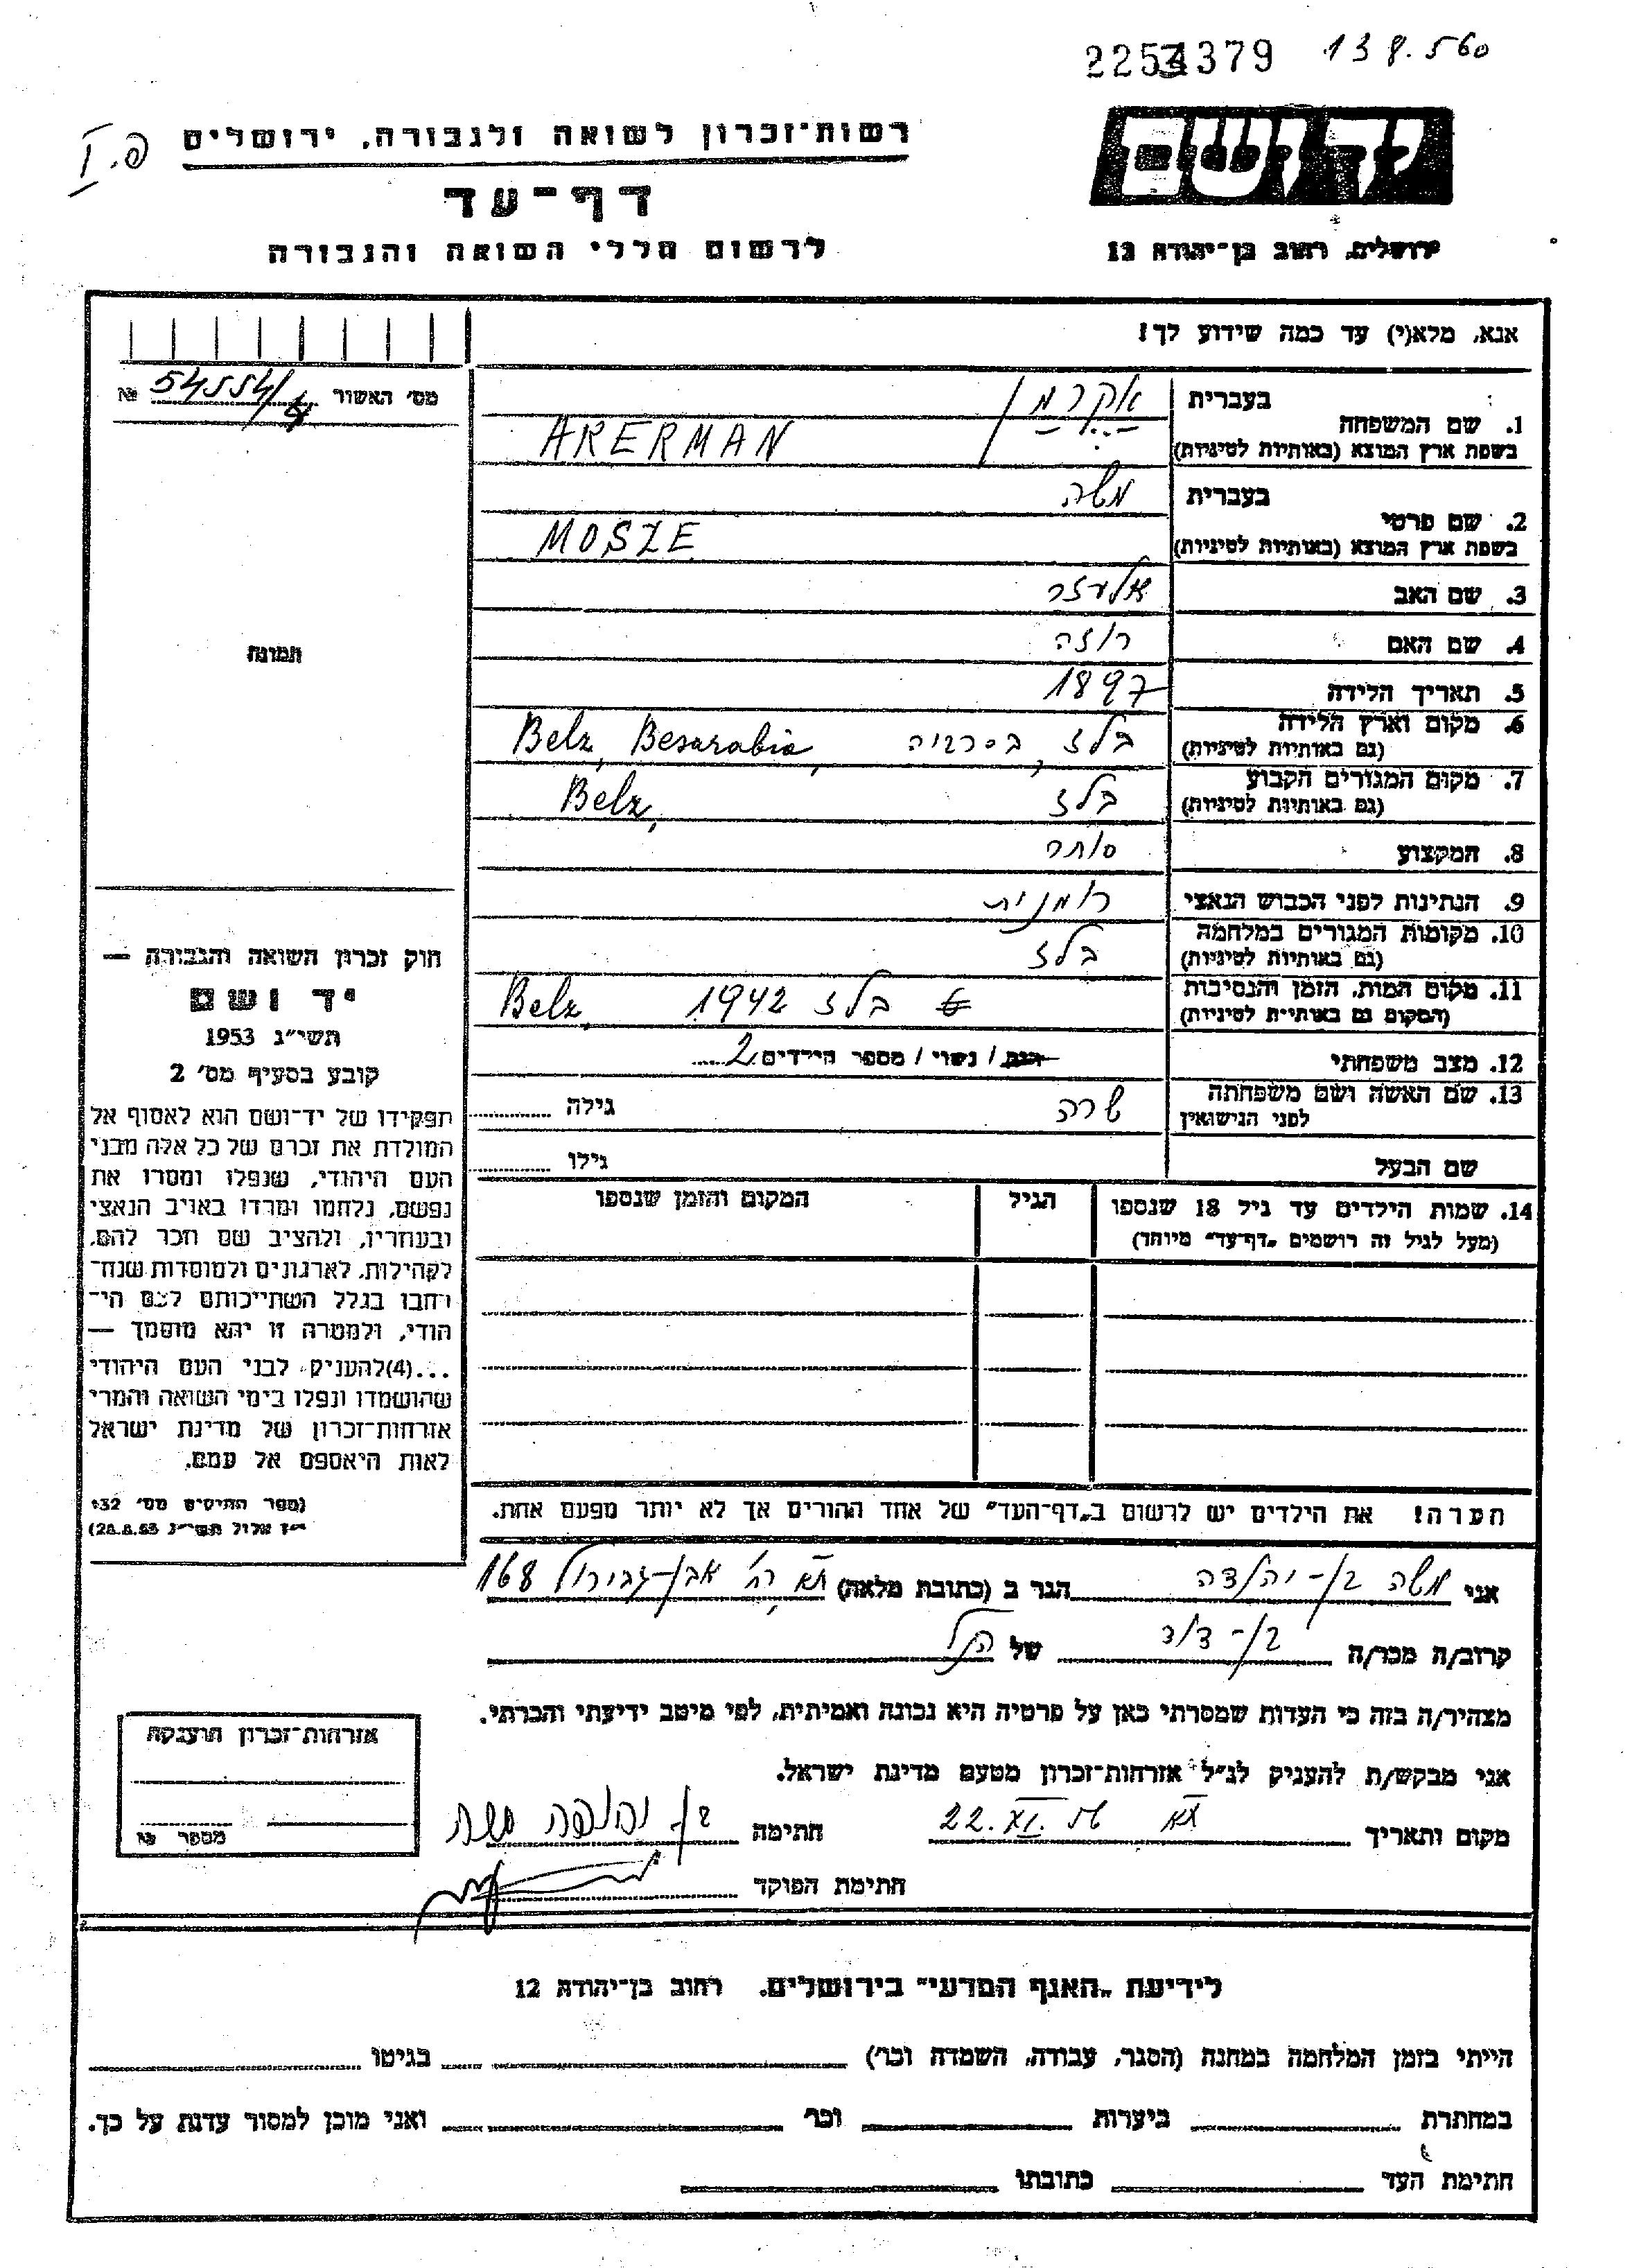 2254379 138.560
יד ושם
רשות־זכרון לשואה ולגבורה, ירושלים
דף־עד
לרשום חללי השואה והגבורה
ירושלים, רחוב בן־יהודה 12
אנא, מלא(י) עד כמה שידוע לך!
מס' האשור 54554/ №
1. שם המשפחה בעברית אקרמן
בשפת ארץ המוצא (באותיות לטיניות) AKERMAN
2. שם פרטי בעברית משה
בשפת ארץ המוצא (באותיות לטיניות) MOSZE
3. שם האב אלעזר
4. שם האם רוזה
5. תאריך הלידה 1897
6. מקום וארץ הלידה בלז, בסרביה Belz, Besarabia,
(גם באותיות לטיניות)
7. מקום המגורים הקבוע בלז Belz,
(גם באותיות לטיניות)
8. המקצוע סוחר
9. הנתינות לפני הכבוש הנאצי רומנית
10. מקומות המגורים במלחמה בלז
(גם באותיות לטיניות)
11. מקום המות, הזמן והנסיבות בלז 1942 Belz,
(המקום גם באותיות לטיניות)
12. מצב משפחתי רווק / נשוי / מספר הילדים 2
13. שם האשה ושם משפחתה לפני הנישואין שרה גילה
שם הבעל גילו
14. שמות הילדים עד גיל 18 שנספו הגיל המקום והזמן שנספו
(מעל לגיל זה רושמים "דף־עד" מיוחד)
הערה! את הילדים יש לרשום ב"דף־העד" של אחד ההורים אך לא יותר מפעם אחת.
תמונה
חוק זכרון השואה והגבורה —
יד ושם
תשי"ג 1953
קובע בסעיף מס' 2
תפקידו של יד־ושם הוא לאסוף אל
המולדת את זכרם של כל אלה מבני
העם היהודי, שנפלו ומסרו את
נפשם, נלחמו ומרדו באויב הנאצי
ובעוזריו, ולהציב שם וזכר להם,
לקהילות, לארגונים ולמוסדות שנח־
רבו בגלל השתייכותם לעם הי־
הודי, ולמטרה זו יהא מוסמך —
...(4)להעניק לבני העם היהודי
שהושמדו ונפלו בימי השואה והמרי
אזרחות־זכרון של מדינת ישראל
לאות היאספם אל עמם.
(ספר החוקים מס' 132
י"ז אלול תשי"ג 28.8.53)
אני משה בן-יהודה הגר ב (כתובת מלאה) תא רח' אבן-גבירול 168
קרוב/ה מכר/ה בן-דוד של הנ"ל
מצהיר/ה בזה כי העדות שמסרתי כאן על פרטיה היא נכונה ואמיתית, לפי מיטב ידיעתי והכרתי.
אני מבקש/ת להעניק לנ"ל אזרחות־זכרון מטעם מדינת ישראל.
מקום ותאריך תא 22.XI.56 חתימה בן יהודה משה
חתימת הפוקד
אזרחות־זכרון הוענקה
מספר №
לידיעת "האגף המדעי" בירושלים. רחוב בן־יהודה 12
הייתי בזמן המלחמה במחנה (הסגר, עבודה, השמדה וכו') בגיטו
במחתרת ביערות וכו' ואני מוכן למסור עדות על כך.
חתימת העד כתובתו